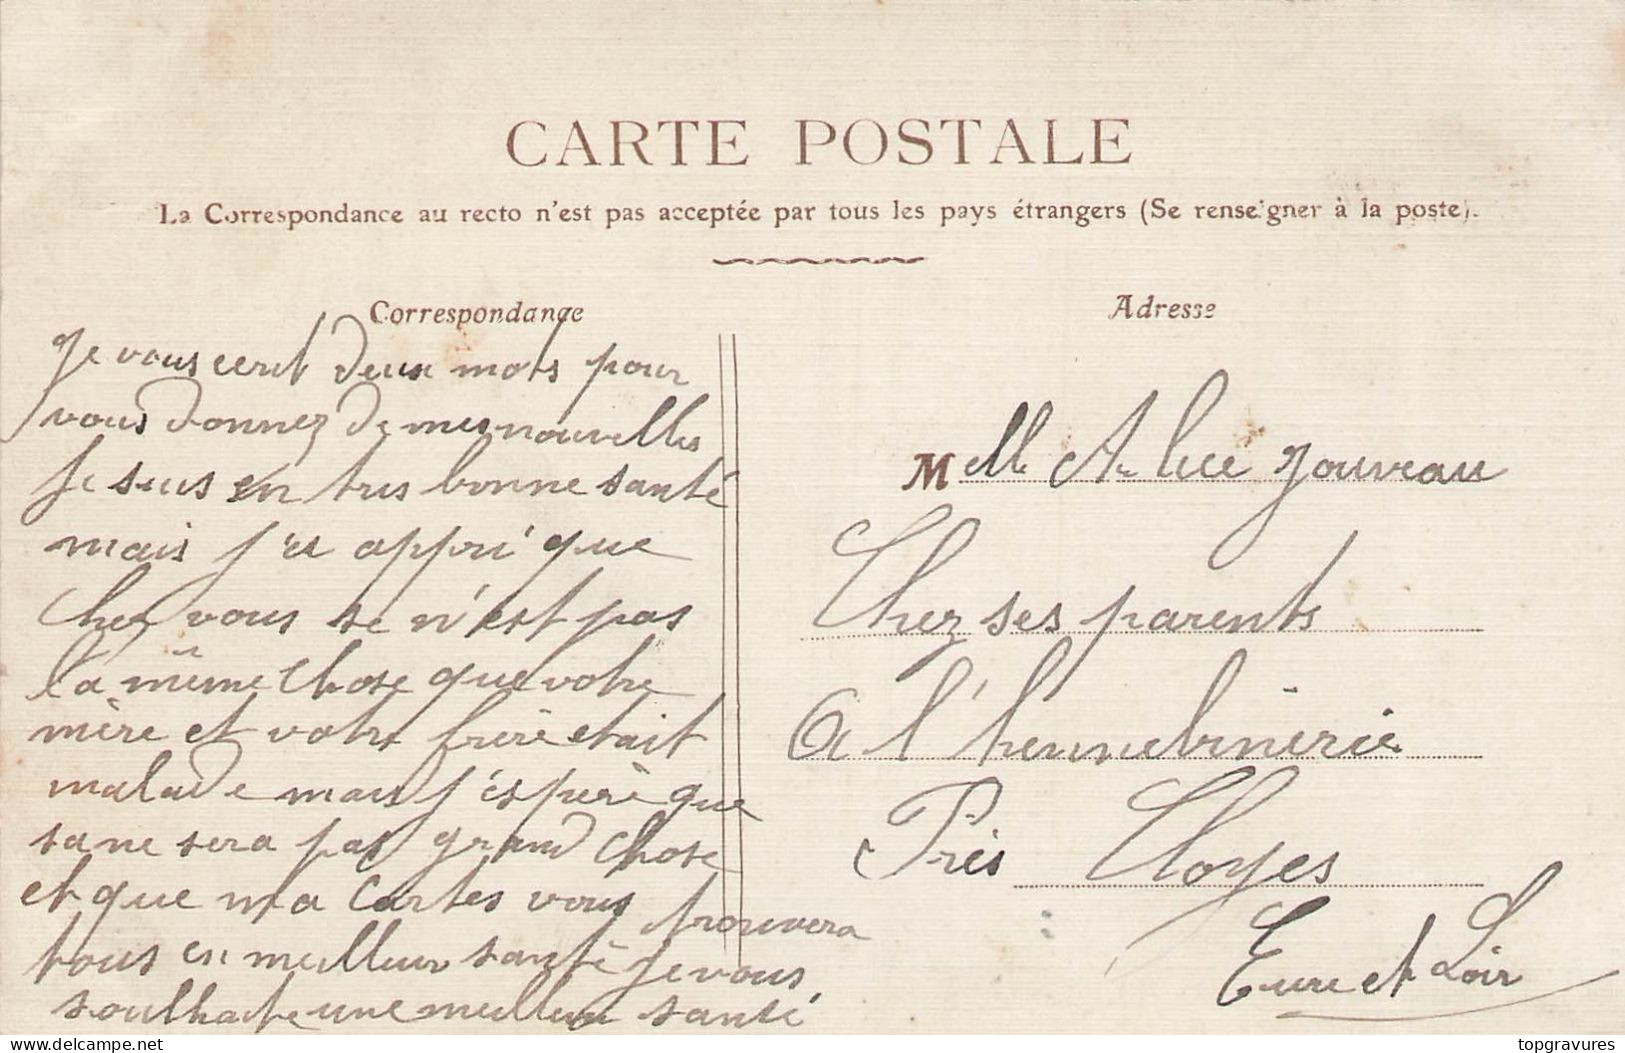 CARTE POSTALE
La Correspondance au recto n'est pas acceptée par tous les pays étrangers (Se renseigner à la poste).
Correspondance
je vous ecrit deux mots pour
vous donnez de mes nouvelles
je suis en tres bonne santé
mais j'ai appri que
chez vous se n'est pas
la même chose que votre
mère et votre frère etait
malade mais j'éspère que
sa ne sera pas grand chose
et que ma cartes vous trouvera
tous en meilleur santé je vous
souhaite une meilleur santé
Adresse
Melle Alice Jouveau
Chez ses parents
A l'
Près Cloyes
Eure et Loir
www.delcampe.net
topgravures